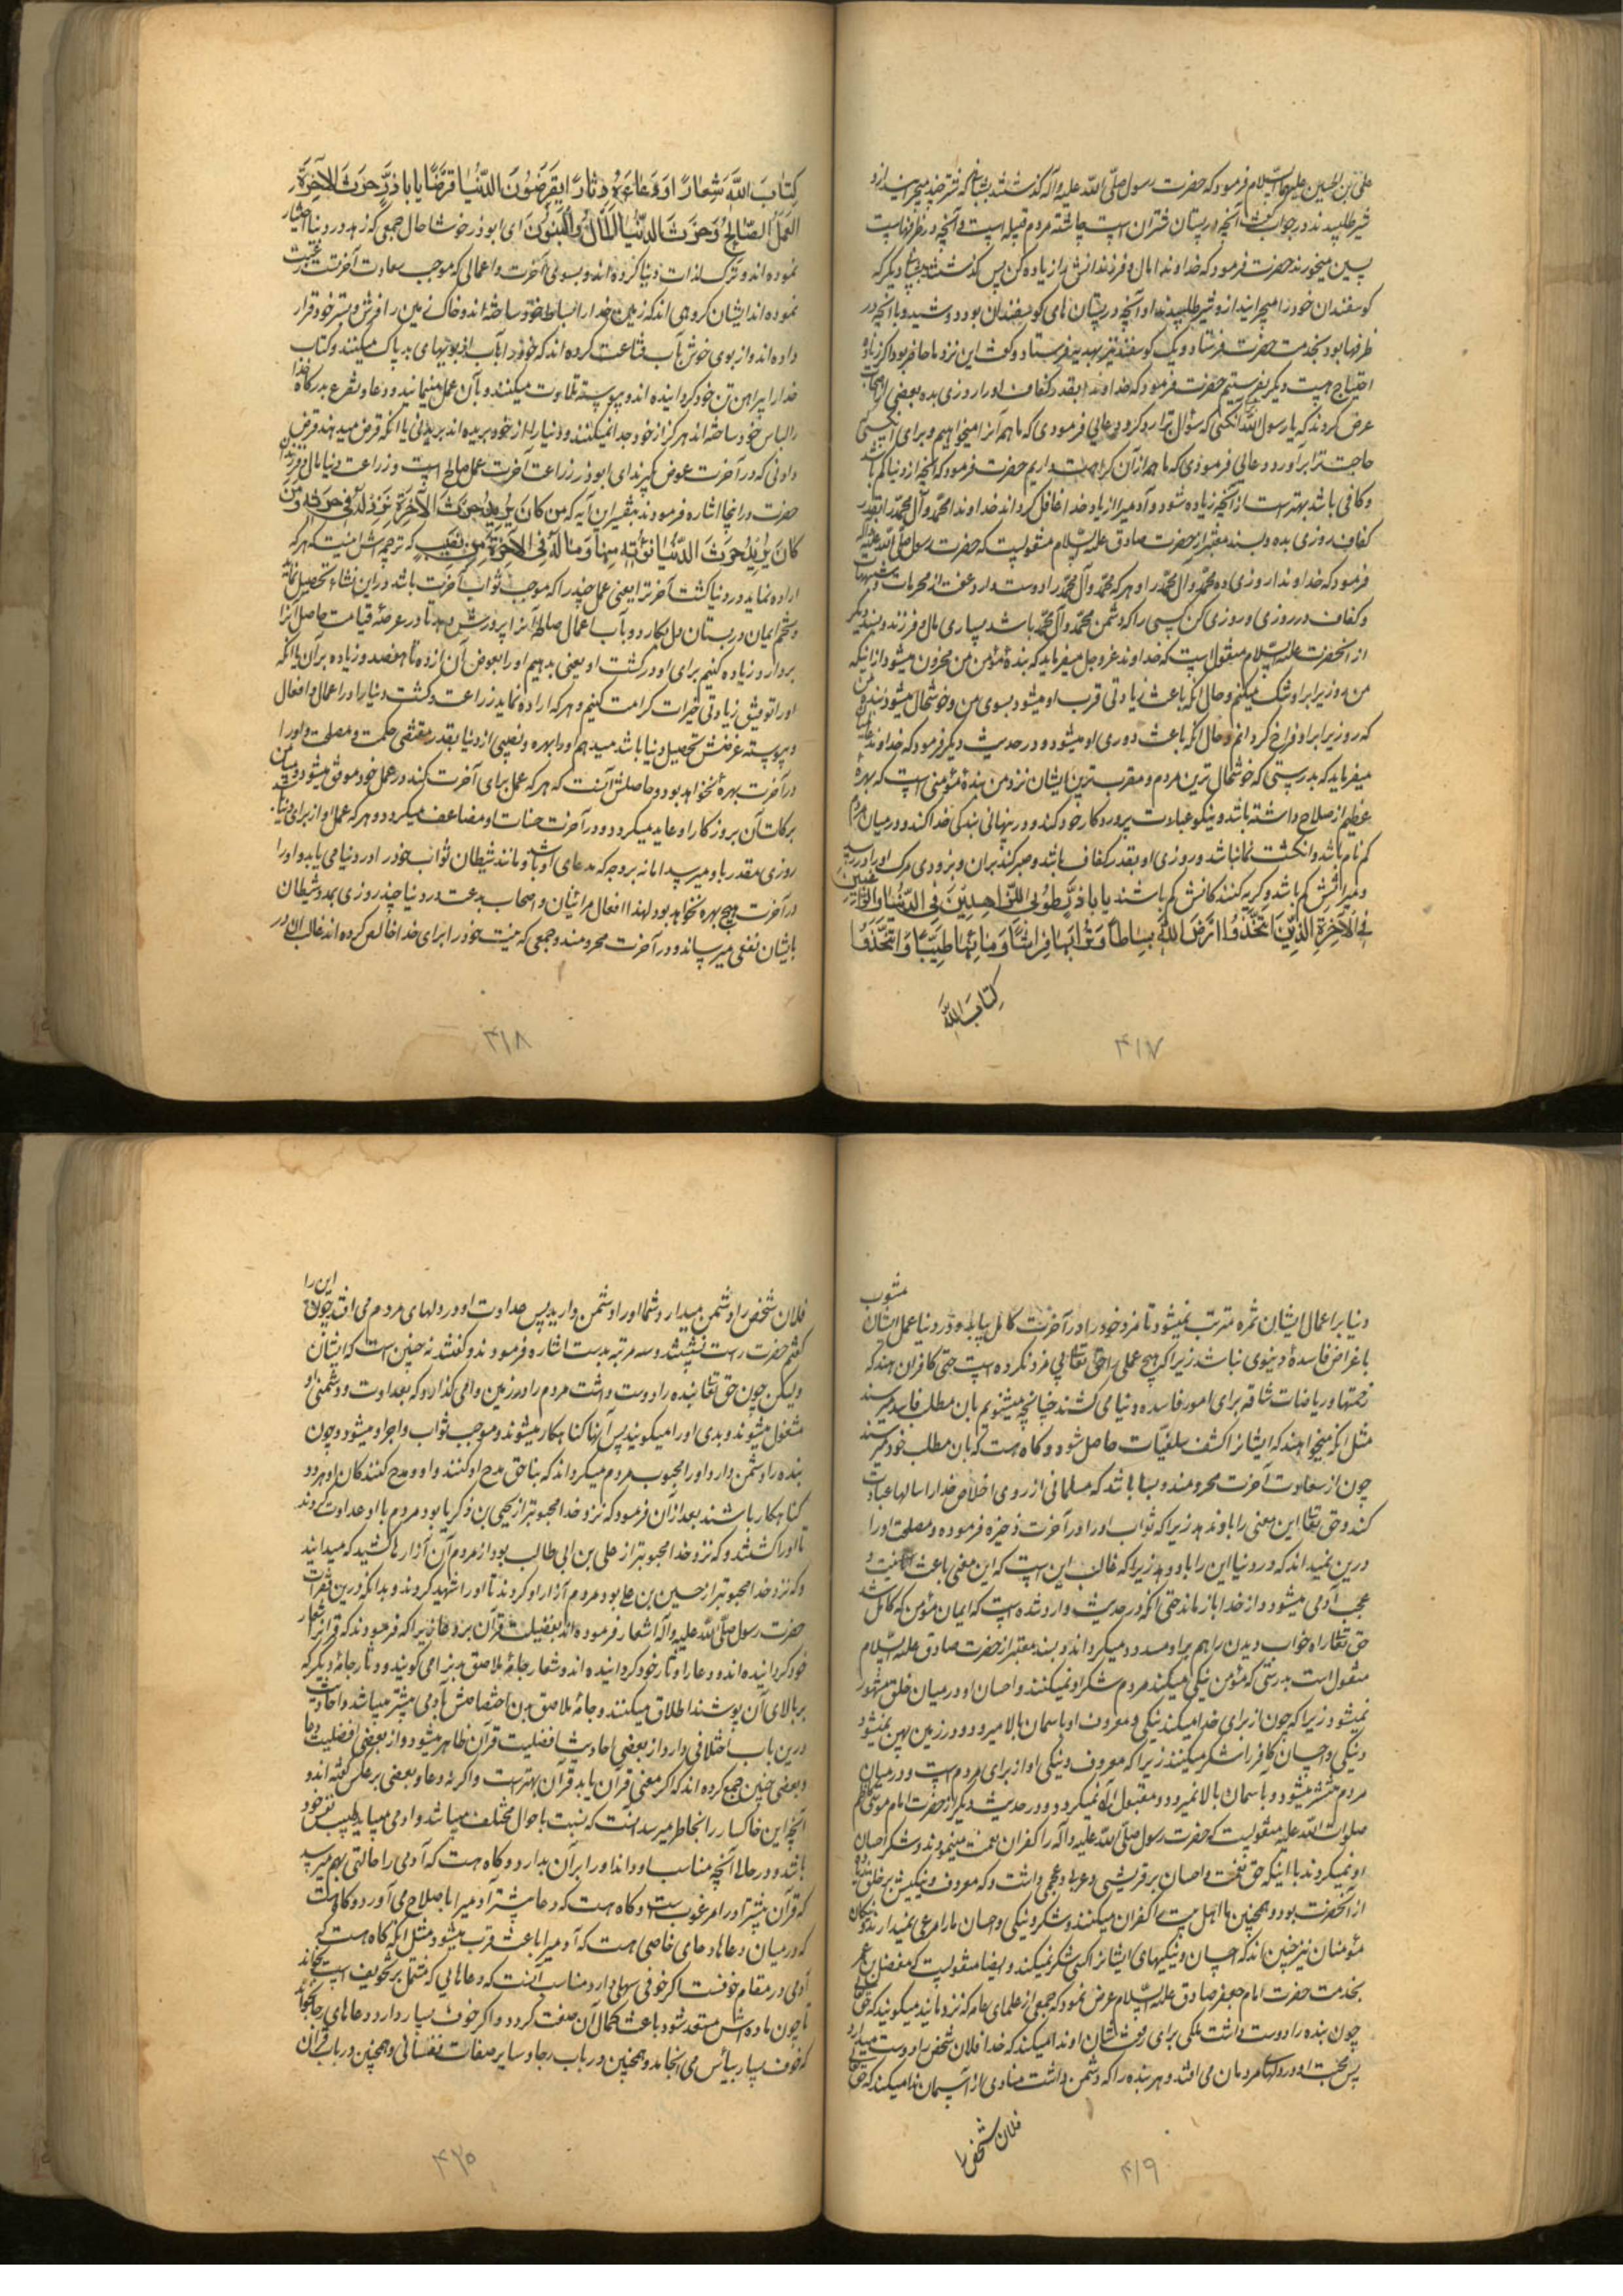 علی بن الحسین علیهما السلام فرمود که حضرت رسول صلی الله علیه و آله گذشتند بشبانی که شتر چند میچرانید از او
شیر طلبیدند در جواب گفت آنچه در پستان شتران است چاشته مردم قبیله است و آنچه در ظرفهاست
پسین میخورند حضرت فرمود که خداوندا مال و فرزندانش را زیاده کن پس گذشتند بشبانی دیگر که
گوسفندان خود را میچرانید از او شیر طلبیدند او آنچه در پستان های گوسفندان بود دوشید و با آنچه در
ظرفها بود بخدمت حضرت فرستاد و یک گوسفند نیز بهدیه فرستاد و گفت این نزد ما حاضر بود اگر زیاده
احتیاج هست دیگر بفرستیم حضرت فرمود که خداوندا بقدر کفاف او را روزی بده بعضی از اصحاب
عرض کردند که یا رسول الله آنکسی که سؤال ترا رد کرد دعایی فرمودی که ما همه آنرا میخواهیم و برای آنکسی
حاجت ترا برآورد دعایی فرمودی که ما همه از آن کراهت داریم حضرت فرمود که آنچه از دنیا کم باشد
و کافی باشد بهتر است از آنچه زیاده شود و آدمی را از یاد خدا غافل گرداند خداوندا محمد و آل محمد را بقدر
کفاف روزی بده و بسند معتبر از حضرت صادق علیه السلام منقولست که حضرت رسول صلی الله علیه و آله
فرمود که خداوندا روزی ده محمد و آل محمد را و هر که محمد و آل محمد را دوست دارد عفت از محرمات و شبهات
و کفاف در روزی و روزی کن کسی را که دشمن محمد و آل محمد باشد بسیاری مال و فرزند و بسند دیگر
از آنحضرت علیه السلام منقول است که خداوند عز و جل میفرماید که بندهٔ مؤمن من محزون میشود از اینکه
من روزی را بر او تنگ میکنم و حال آنکه باعث زیادتی قرب او میشود بسوی من و خوشحال میشود بندهٔ من
که روزی را بر او فراخ گردانم و حال آنکه باعث دوری او میشود و در حدیث دیگر فرمود که خداوند عالمیان
میفرماید که بدرستی که خوشحال ترین مردم و مقرب ترین ایشان نزد من بندهٔ مؤمنی است که بهرهٔ
عظیم از صلاح داشته باشد و نیکو عبادت پروردگار خود کند و در پنهانی بندگی خدا کند و در میان مردم
گم نام باشد و انگشت نما نباشد و روزی او بقدر کفاف باشد و صبر کند بر آن و بزودی مرگ او را در رسد
و میراثش کم باشد و گریه کنندگانش کم باشند یا باذر طوبی للزاهدین فی الدنیا و الراغبین
فی الآخرة الذین اتخذوا ارض الله بساطا و ترابها فراشا و ماءها طیبا و اتخذوا
کتاب الله
۴۱۷
کِتابَ اللّٰهِ شِعاراً وَ دُعاءَهُ دِثاراً یَقرِضُونَ الدُّنیا قَرضاً یا باذر حَرثُ الآخِرَةِ
العَمَلُ الصّالِحُ وَ حَرثُ الدُّنیا المالُ وَ البَنُونَ ای ابوذر خوشا حال جمعی که زهد در دنیا اختیار
نموده اند و ترک لذات دنیا کرده اند و بسوی آخرت و اعمالی که موجب سعادت آخرتست رغبت
نموده اند ایشان گروهی اند که زمین خدا را بساط خود ساخته اند و خاک زمین را فرش و بستر خود قرار
داده اند و از بوی خوش بآب قناعت کرده اند که خود را بآب از بویهای بد پاک میکنند و کتاب
خدا را پیراهن تن خود گردانیده اند و پیوسته تلاوت میکنند و بآن عمل مینمایند و دعا و تضرع بدرگاه خدا
را لباس خود ساخته اند هرگز از خود جدا نمیکنند و دنیا را از خود بریده اند بریدنی یا آنکه قرض میدهند قرض
دادنی که در آخرت عوض گیرند ای ابوذر زراعت آخرت عمل صالح است و زراعت دنیا مال و فرزندان
حضرت در اینجا اشاره فرمودند بتفسیر این آیه که من کان یرید حرث الآخرة نزد له فی حرثه و من
کان یرید حرث الدنیا نؤته منها و ما له فی الآخرة من نصیب که ترجمه اش اینست که هر که
اراده نماید در دنیا کشت آخرت را یعنی عمل چند را که موجب ثواب آخرت باشد در این نشاء تحصیل نماید
و تخم ایمان در بستان دل بکارد و بآب اعمال صالحه آنرا پرورش دهد تا در عرصهٔ قیامت حاصل آنرا
بردارد زیاده کنیم برای او در کشت او یعنی بدهیم او را بعوض آن از ده تا هفتصد و زیاده بر آن یا آنکه
او را توفیق زیادتی خیرات کرامت کنیم و هر که اراده نماید زراعت و کشت دنیا را در اعمال و افعال
و پیوسته غرضش تحصیل دنیا باشد میدهیم او را بهره و نصیبی از دنیا بقدر مقتضی حکمت و مصلحت و او را
در آخرت بهرهٔ نخواهد بود و حاصلش آنست که هر که عمل برای آخرت کند در عمل خود موفق میشود و میامن
برکات آن بروزگار او عاید میگردد و در آخرت حسنات او مضاعف میگردد و هر که عمل او از برای دنیاست
روزی مقدر باو میرسد اما نه بروجه که مدعای او باشد و مانند شیطان ثواب خود را در دنیا می یابد و او را
در آخرت هیچ بهره نخواهد بود لهذا افعال مرائیان و اصحاب بدعت در دنیا چند روزی بمدد شیطان
بایشان نفعی میرساند و در آخرت محرومند و جمعی که نیت خود را برای خدا خالص کرده اند غالب آنست که در
۴۱۸
دنیا بر اعمال ایشان ثمره مترتب نمیشود تا مزد خود را در آخرت کامل بیابند و در دنیا عمل ایشان مشوب
باغراض فاسدهٔ دنیوی نباشد زیرا که هیچ عملی را حق تعالی بی مزد نکرده است حتی کافران هند که
زحمتها و ریاضات شاقه برای امور فاسده دنیا می کشند چنانچه میشنویم بآن مطلب فاسد میرسند
مثل آنکه میخواهند که ایشانرا کشف سلفیّات حاصل شود و گاه هست که بآن مطلب خود میرسند
چون از سعادت آخرت محرومند و بسا باشد که مسلمانی از روی اخلاص خدا را سالها عبادت
کند و حق تعالی این معنی را باو ندهد زیرا که ثواب او را در آخرت ذخیره فرموده و مصلحت او را
درین نمیداند که در دنیا این را باو دهد زیرا که غالب این است که این معنی باعث
عجب آدمی میشود و از خدا باز ماند حتی آنکه در حدیث وارد شده است که ایمان مؤمن که کامل شد
حق تعالی راه خواب دیدن را هم بر او مسدود میگرداند و بسند معتبر از حضرت صادق علیه السلام
منقول است بدرستی که مؤمن نیکی میکند مردم شکر او نمیکنند و احسان او در میان خلق مشهور
نمیشود زیرا که چون از برای خدا میکند نیکی و معروف او بآسمان بالا میرود و در زمین پهن نمیشود
و نیکی و احسان کافر را شکر میکنند زیرا که معروف و نیکی او از برای مردم است و در میان
مردم منتشر میشود و بآسمان بالا نمیرود و مقبول اله نمیگردد و در حدیث دیگر از حضرت امام موسی کاظم
صلوات الله علیه منقولست که حضرت رسول صلی الله علیه و آله را کفران نعمت مینمودند و شکر احسان
او نمیکردند با اینکه حق نعمت و احسان بر قریشی و عربی و عجمی داشت و که معروف و نیکیش بر خلق زیاده
از آنحضرت بود و همچنین ما اهل بیت را کفران میکنند و شکر و نیکی و احسان ما را مرعی نمیدارند و نیکان
مؤمنان نیز چنین اند که احسان و نیکیهای ایشانرا کسی شکر نمیکند و ایضا منقولست که مفضل بن عمر
بخدمت حضرت امام جعفر صادق علیه السلام عرض نمود که جمعی از علمای عامه که نزد مایند میگویند که حق تعالی
چون بنده را دوست داشت ملکی برای رفعت شان او ندا میکند که خدا فلان شخص را دوست میدارد
پس محبت او در دلهای مردمان می افتد و هر بنده را که دشمن داشت منادی از آسمان ندا میکند که حق تعالی
فلان شخص را
۴۱۹
فلان شخص را دشمن میدارد شما او را دشمن دارید پس عداوت او در دلهای مردم می افتد چون این را
گفتم حضرت راست نشستند و سه مرتبه بدست اشاره فرمودند و گفتند نه چنین است که ایشان
ولیکن چون حق تعالی بنده را دوست داشت مردم را در زمین وامی گذارد که بعداوت و دشمنی او
مشغول میشوند و بدی او را میگویند پس آنها گناهکار میشوند و موجب ثواب و اجر او میشود و چون
بنده را دشمن دارد او را محبوب مردم میگرداند که بناحق مدح او کنند و او و مدح کنندگان او هر دو
گناهکار باشند بعد از آن فرمود که نزد خدا محبوبتر از یحیی بن زکریا بود مردم با او عداوت کردند
تا او را کشتند و که نزد خدا محبوبتر از علی بن ابی طالب بود از مردم آن آزارها کشید که میدانید
و که نزد خدا محبوبتر از حسین بن علی بود مردم آزار او کردند تا او را شهید کردند و بدانکه درین فقرات
حضرت رسول صلی الله علیه و آله اشعار فرموده اند بفضیلت قرآن بر دعا زیرا که فرمودند که قرآنرا شعار
خود گردانیده اند و دعا را دثار خود گردانیده اند و شعار جامهٔ ملاصق بدنرا می گویند و دثار جامهٔ دیگر که
بر بالای آن پوشند اطلاق میکنند و جامهٔ ملاصق بدن اختصاصش بآدمی بیشتر میباشد و احادیث
درین باب اختلافی دارد از بعضی احادیث افضلیت قرآن ظاهر میشود و از بعضی افضلیت دعا
و بعضی چنین جمع کرده اند که اگر معنی قرآن یابد قرآن بهتر است و اگر نه دعا و بعضی برعکس گفته اند و
آنچه این خاکسار را بخاطر میرسد آنست که نسبت باحوال مختلف میباشد و آدمی میباید طبیب نفس خود
باشد و در حالی آنچه مناسب او داند او را بر آن بدارد و گاه هست که آدمی را حالتی بهم میرسد
که قرآن بیشتر او را مرغوب است و گاه هست که دعا بیشتر آدمی را باصلاح می آورد و گاه هست
که در میان دعاها دعای خاصی هست که آدمی را باعث قرب میشود مثل آنکه گاه هست که
آدمی در مقام خوفست اگر خوفی سهلی دارد مناسب آنست که دعاهایی که مشتمل بر تخویف است بخواند
تا چون ماده اش مستعد شود باعث کمال آن صفت گردد و اگر خوف بسیار دارد دعاهای رجا بخواند
که خوف بسیار بیأس می انجامد و همچنین در باب رجا و سایر صفات نفسانی و همچنین در باب قرآن
۴۲۰